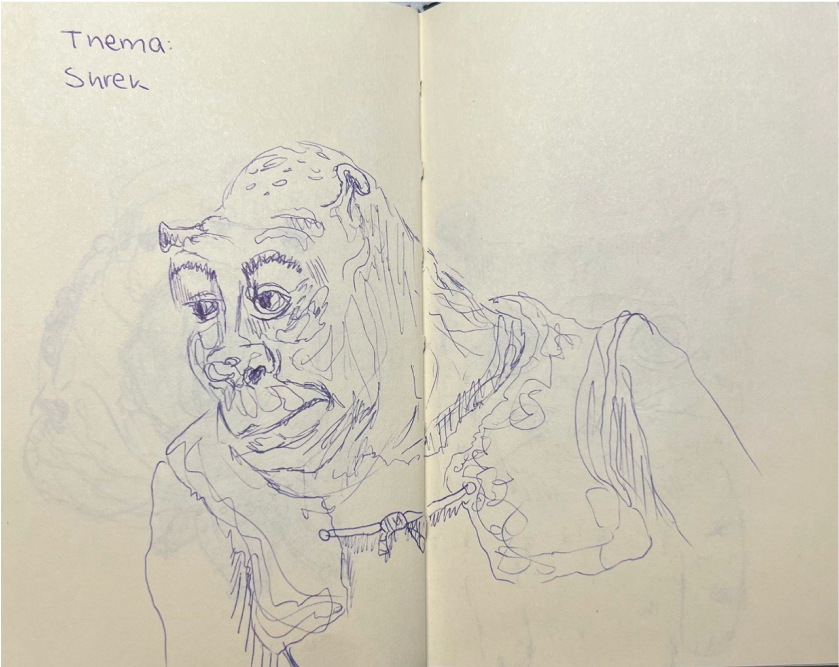 Thema:
Shrek